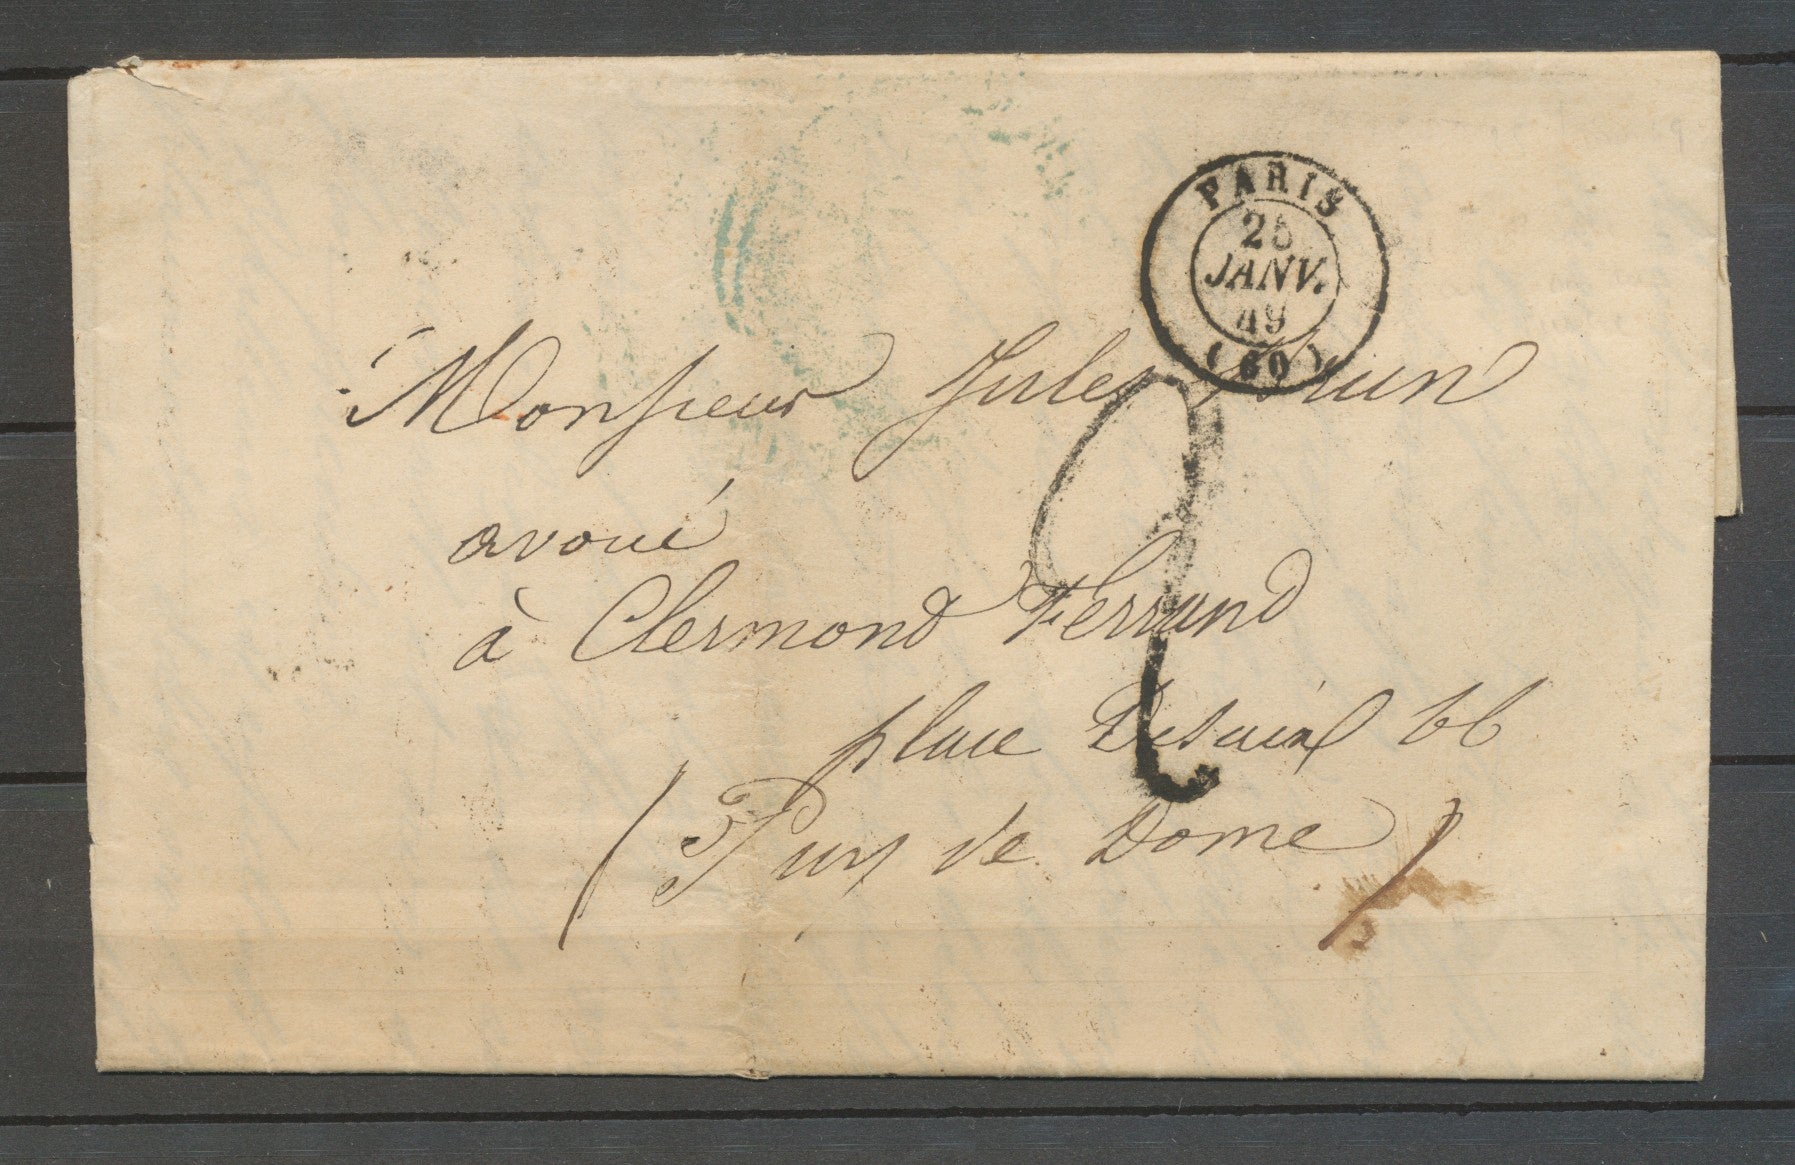 PARIS
25
JANV.
49
(60)
Monsieur Jules
avoué
à Clermond Ferrand
place Desaix 66
(Puy de Dome)
2